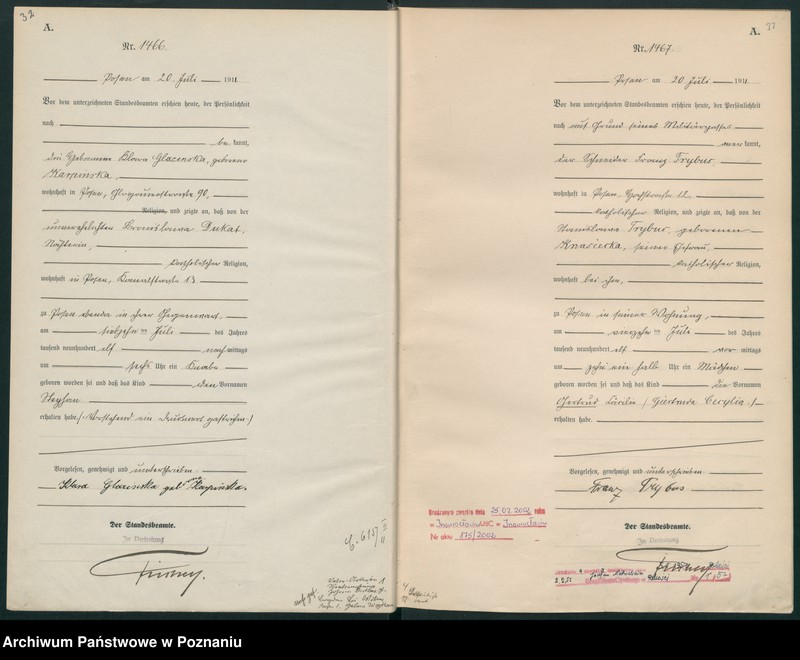 32
A.
Nr. 1466.
Posen am 20. Juli 1911
Vor dem unterzeichneten Standesbeamten erschien heute, der Persönlichkeit
nach
be kannt,
die Hebamme Klara Glazinska, geborene
Karpinska
wohnhaft in Posen, 90,
Religion, und zeigte an, daß von der
unverehelichten Bronislawa Dukat,
Nähterin,
katholischer Religion,
wohnhaft in Posen, Kanalstraße 13
zu Posen ebenda in ihrer Gegenwart,
am siebzehn ten Juli des Jahres
tausend neunhundert elf nach mittags
um sechs Uhr ein Knabe
geboren worden sei und daß das Kind den Vornamen
Stephan
erhalten habe. (Vorstehend ein Druckwort gestrichen.)
Vorgelesen, genehmigt und unterschrieben
Klara Glazinska geb Karpinska.
Der Standesbeamte.
In Vertretung
33
A.
Nr. 1467.
Posen am 20. Juli 1911
Vor dem unterzeichneten Standesbeamten erschien heute, der Persönlichkeit
nach auf Grund seines Militärpasses
aner kannt,
der Schneider Franz Trybus
wohnhaft in Posen, 12
katholischer Religion, und zeigte an, daß von der
Stanislawa Trybus, geborenen
seiner Ehefrau,
katholischer Religion,
wohnhaft bei ihm,
zu Posen in seiner Wohnung,
am vierzehn ten Juli des Jahres
tausend neunhundert elf vor mittags
um zehn ein halb Uhr ein Mädchen
geboren worden sei und daß das Kind die Vornamen
Gertrud Cäcilie (Gertruda Cecylia)
erhalten habe.
Vorgelesen, genehmigt und unterschrieben
Franz Trybus
Der Standesbeamte.
In Vertretung
25.02.2002 roku
w Inowrocław USC w Inowrocław
Nr aktu 175/2002
Archiwum Państwowe w Poznaniu